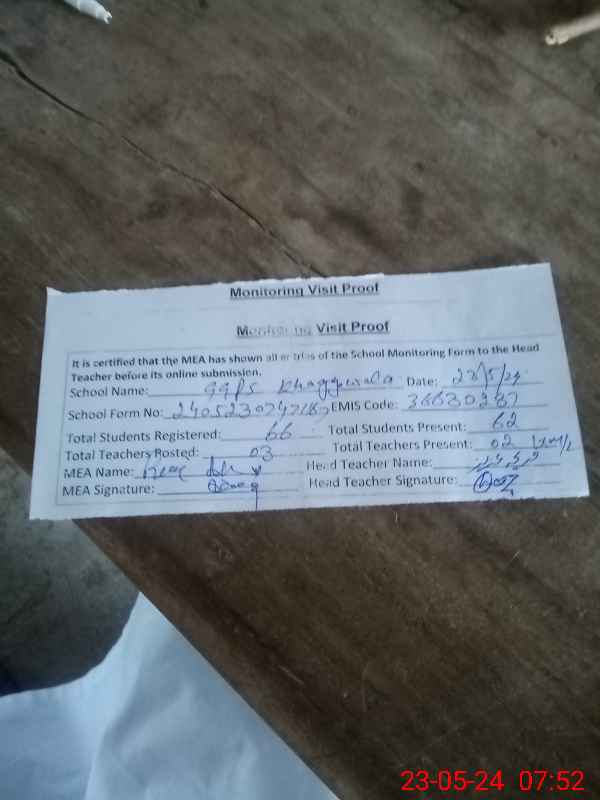 Monitoring Visit Proof
Monitoring Visit Proof
It is certified that the MEA has shown all entries of the School Monitoring Form to the Head
Teacher before its online submission.
School Name: GGPS Khaggewala Date: 23/5/24
School Form No: EMIS Code: 36630287
Total Students Registered: 66 Total Students Present: 62
Total Teachers Posted: 03 Total Teachers Present: 02
MEA Name: Head Teacher Name:
MEA Signature: Head Teacher Signature:
23-05-24 07:52